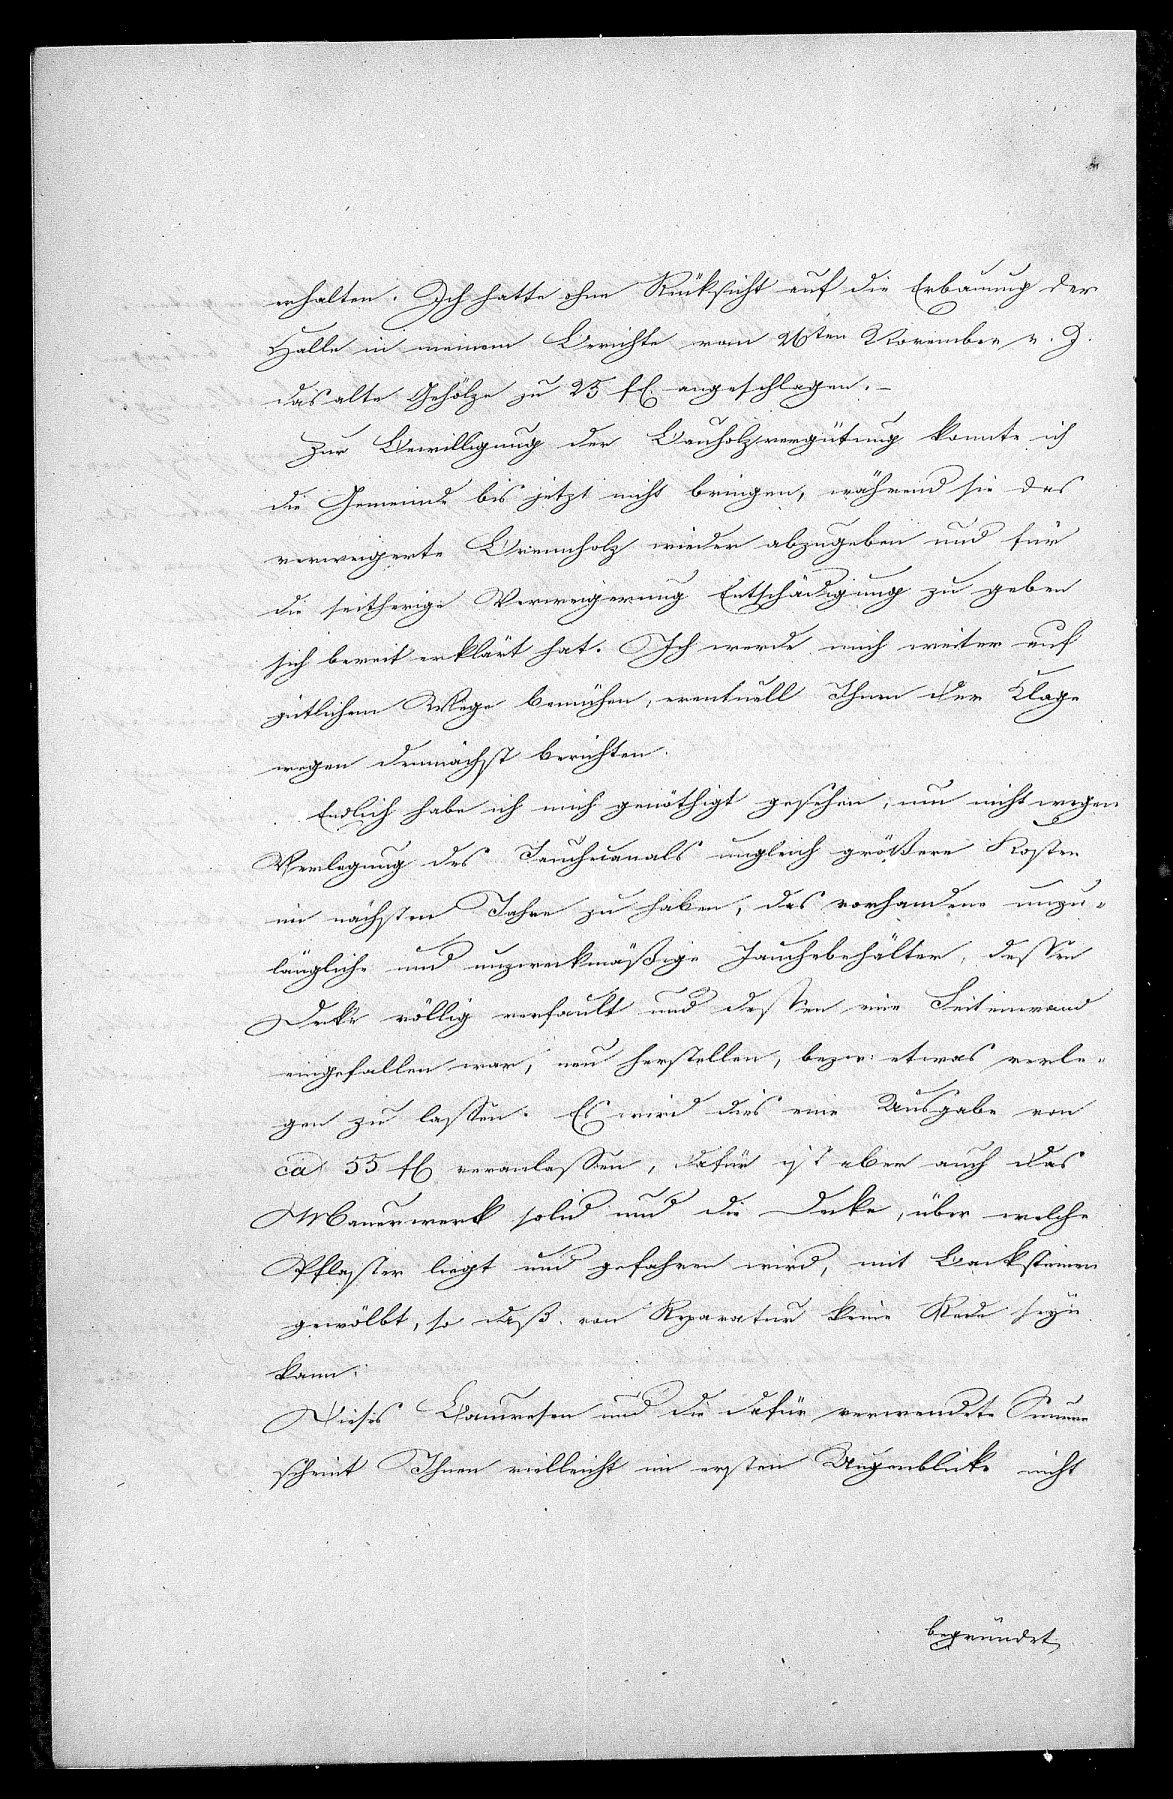 erhalten. Ich hatte ohne Rücksicht auf die Erbauung der
Halle in meinem Berichte vom 26sten November v. J.
das alte Gehölze zu 25 fl. angeschlagen. –
Zur Bewilligung der Bauholzvergütung konnte ich
die Gemeinde bis jetzt nicht bringen, während sie das
verweigerte Brennholz wieder abzugeben und für
die seitherige Verweigerung Entschädigung zu geben
sich bereit erklärt hat. Ich werde mich weiter auf
gütlichem Wege bemühen, eventuell Ihnen der Klage
wegen demnächst berichten.
Endlich habe ich mich genöthigt gesehen, um nicht wegen
Verlegung des Jauchecanals ungleich größere Kosten
im nächsten Jahre zu haben, das vorhandene unzu-
längliche und unzweckmäßige Jauchebehälter, dessen
Decke völlig verfault und dessen eine Seitenwand
eingefallen war, neu herstellen, bezw. etwas verle-
gen zu lassen. Es wird dies eine Ausgabe von
ca 55 fl veranlassen, dafür ist aber auch das
Mauerwerk solid und die Decke, über welche
Pflaster liegt und gefahren wird, mit Backsteinen
gewölbt, so daß von Reparatur keine Rede seyn
kann.
Dieses Bauwesen und die dafür verwendete Summe
scheint Ihnen vielleicht im ersten Augenblicke nicht
begründet,